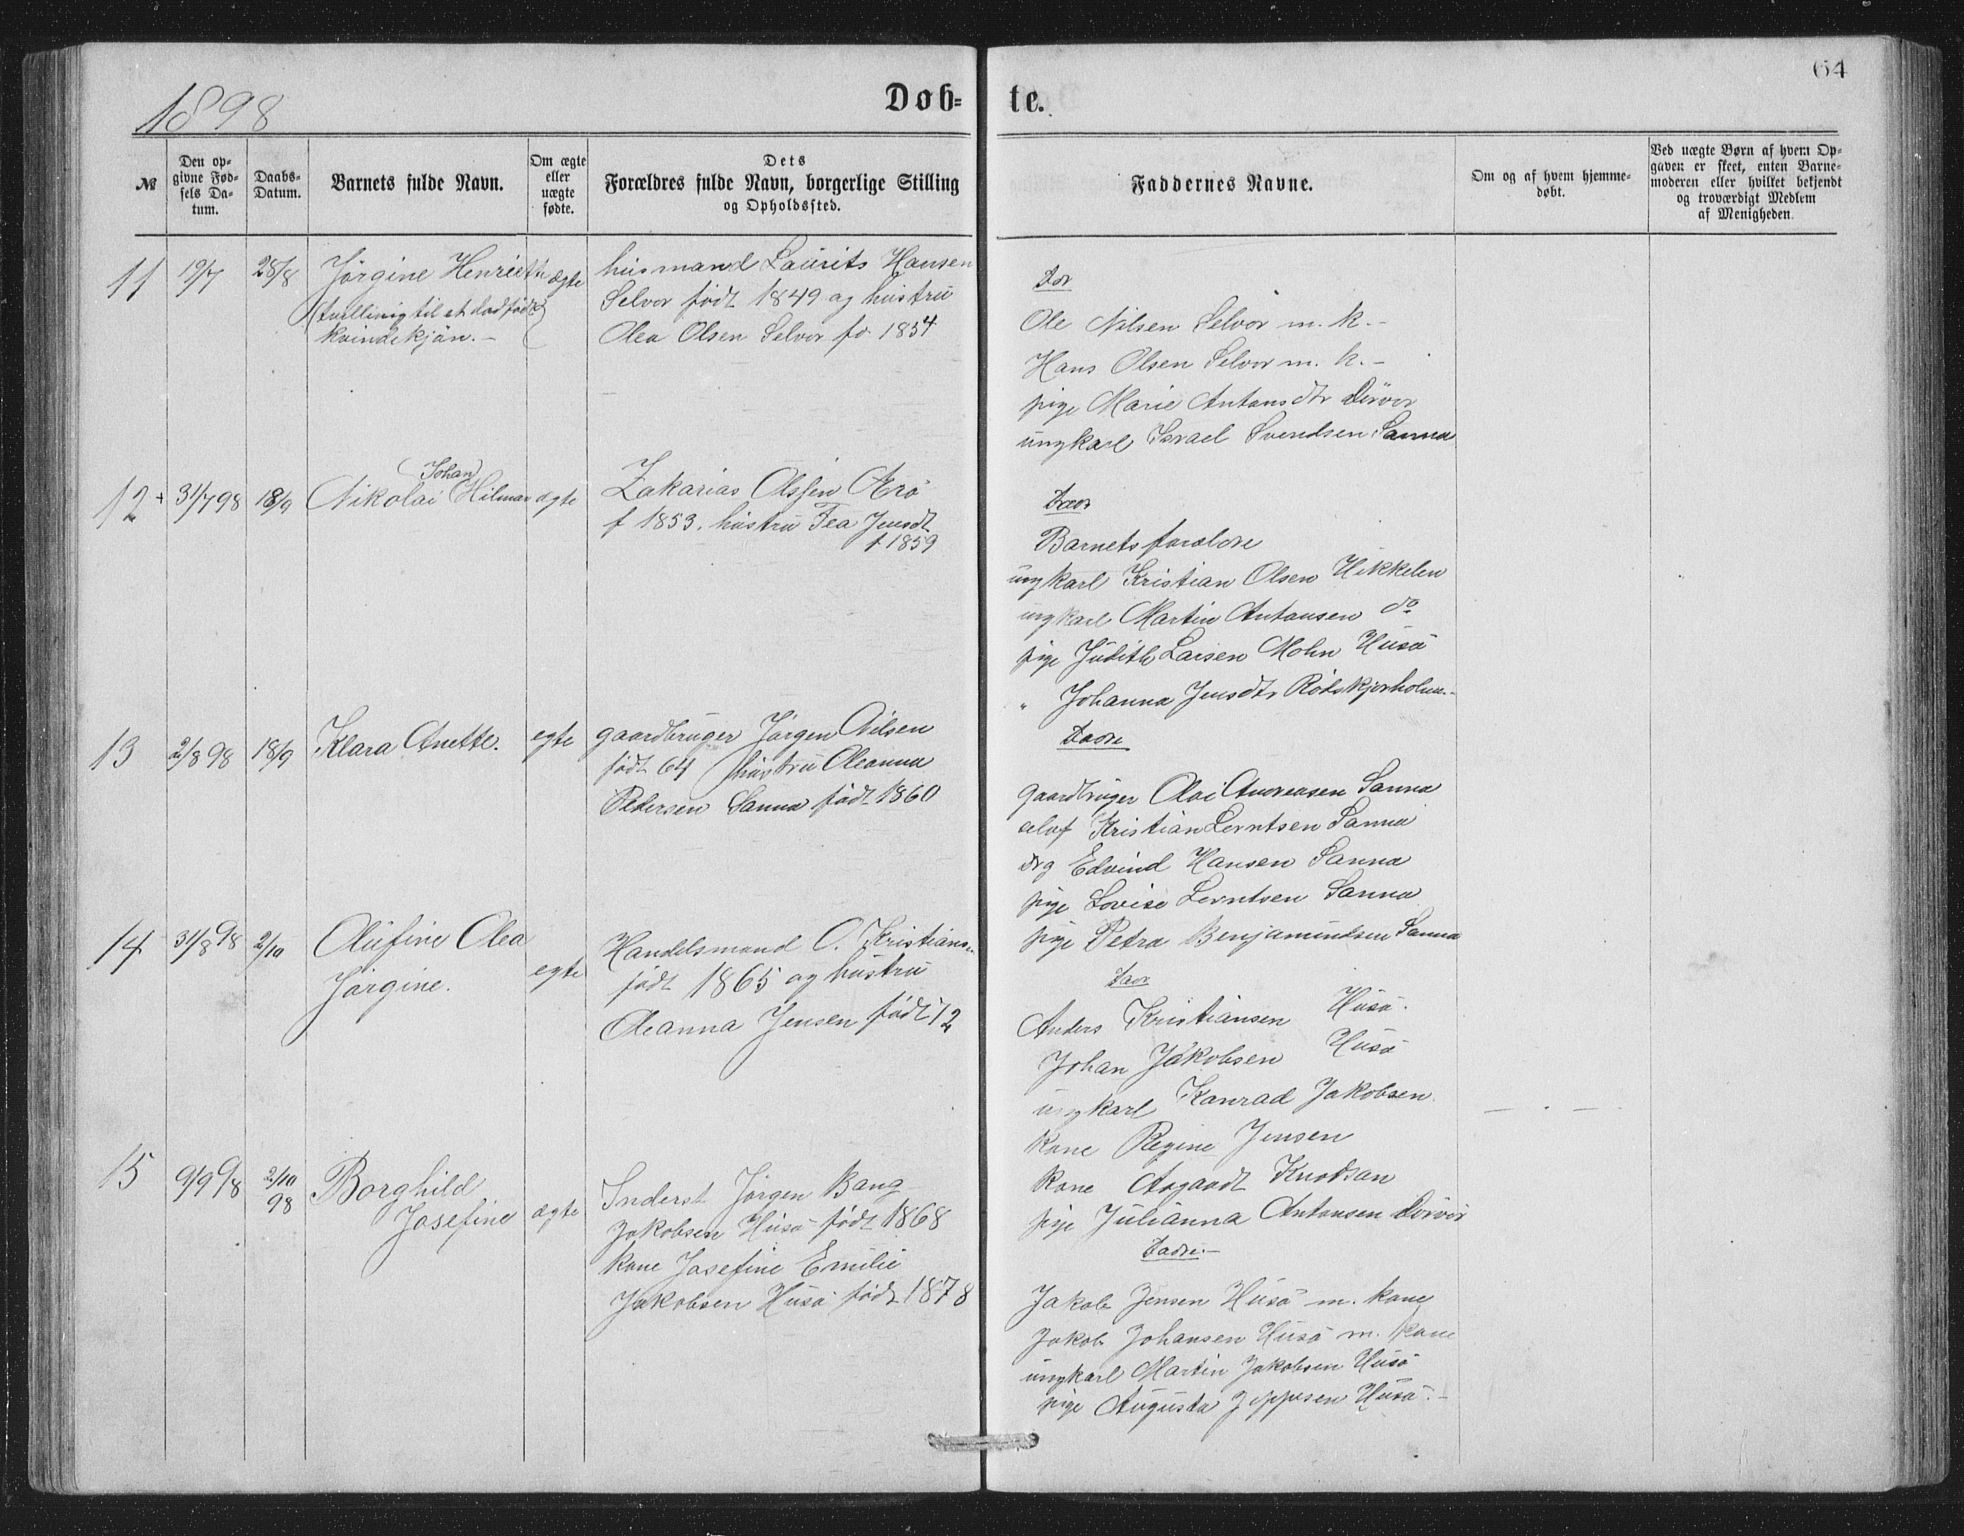 1898
Døb-
te.
64
№
Den op-
givne Fød-
sels Da-
tum.
Daabs-
Datum.
Barnets fulde Navn.
Om ægte
eller
uægte
fødte.
Dets
Forældres fulde Navn, borgerlige Stilling
og Opholdssted.
Faddernes Navne.
Om og af hvem hjemme-
døbt.
Ved uægte Børn af hvem Op-
gaven er skeet, enten Barne-
moderen eller hvilket bekjendt
og troværdigt Medlem
af Menigheden.
11
19/7
28/8
Jørgine Henriette
(tvilling til et dødfødt)
kvindekjön.-
ægte
husmand Laurits Hansen
Selvor født 1849 og hustru
Olea Olsen Selvor fø 1854
Ole Nilsen Selvor m. k.-
Hans Olsen Selvor m. k.-
pige Marie Antonsdtr Dörvor
ungkarl Israel Svendsen Sanna
12
31/7 98
18/9
Johan
Nikolai Hilmar
ægte
Zakarias Olssen Ærö
f 1853. hustru Tea Jensdt
f 1859
Barnets forældre
ungkarl Kristian Olsen Hikkelen
ungkarl Martin Antonsen do
pige Judith Larsen Mohn Husö
" Johanna Jensdtr Rödskjærholm.-
13
2/8 98
18/9
Klara Anette.
egte
gaardbruger Jörgen Nilsen
født 64 hustru Oleanna
Pedersen Sanna født 1860
Fadre
gaardbruger Olai Andreasen Sanna
Kristian Lorntsen Sanna
Edvind Hansen Sanna
pige Lovise Lorntsen Sanna
pige Petra Benjamindsen Sanna
14
31/8 98
2/10
Olufine Olea
Jörgine.
egte
Handelsmand O. Kristians-
født 1865 og hustru
Oleanna Jensen født 72
Anders Kristiansen Husö.
Johan Jakobsen Husö
ungkarl Konrad Jakobsen.
kone Regine Jensen
kone Aagaadt Knodsan
pige Julianna Antonsen Dörvör
15
9/9 98
2/10
98
Borghild
Josefine
ægte
Inderst Jörgen Bang
Jakobsen Husö født 1868
kone Josefine Emilie
Jakobsen Husö født 1878
Fadre.-
Jakob Jensen Husö m. kone
Jakob Johansen Husö m. kone
ungkarl Martin Jakobsen Husö
pige Augusta Jeppesen Husö.-